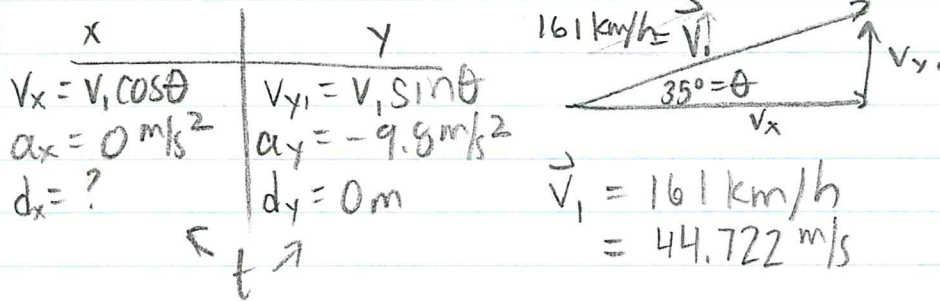 x | y
Vx = V₁cosθ | Vy₁ = V₁sinθ
ax = 0 m/s² | ay = -9.8 m/s²
dx = ? | dy = 0m
t
161 km/h = V⃗₁
Vy₁
35° = θ
Vx
V⃗₁ = 161 km/h
= 44.722 m/s